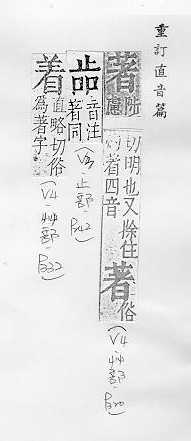 重訂直音篇
著 陟慮
切明也又除住
四音
著俗
(V4-艸部-
音注
著同
止部-
着 直略切俗
為著字
(V4-艸部-